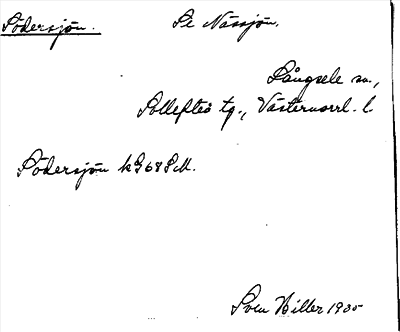 Södersjön. Se Nässjön.
Långsele sn.,
Sollefteå tg., Västernorrl. l.
Södersjön kG68SM.
Sven Hiller 1935